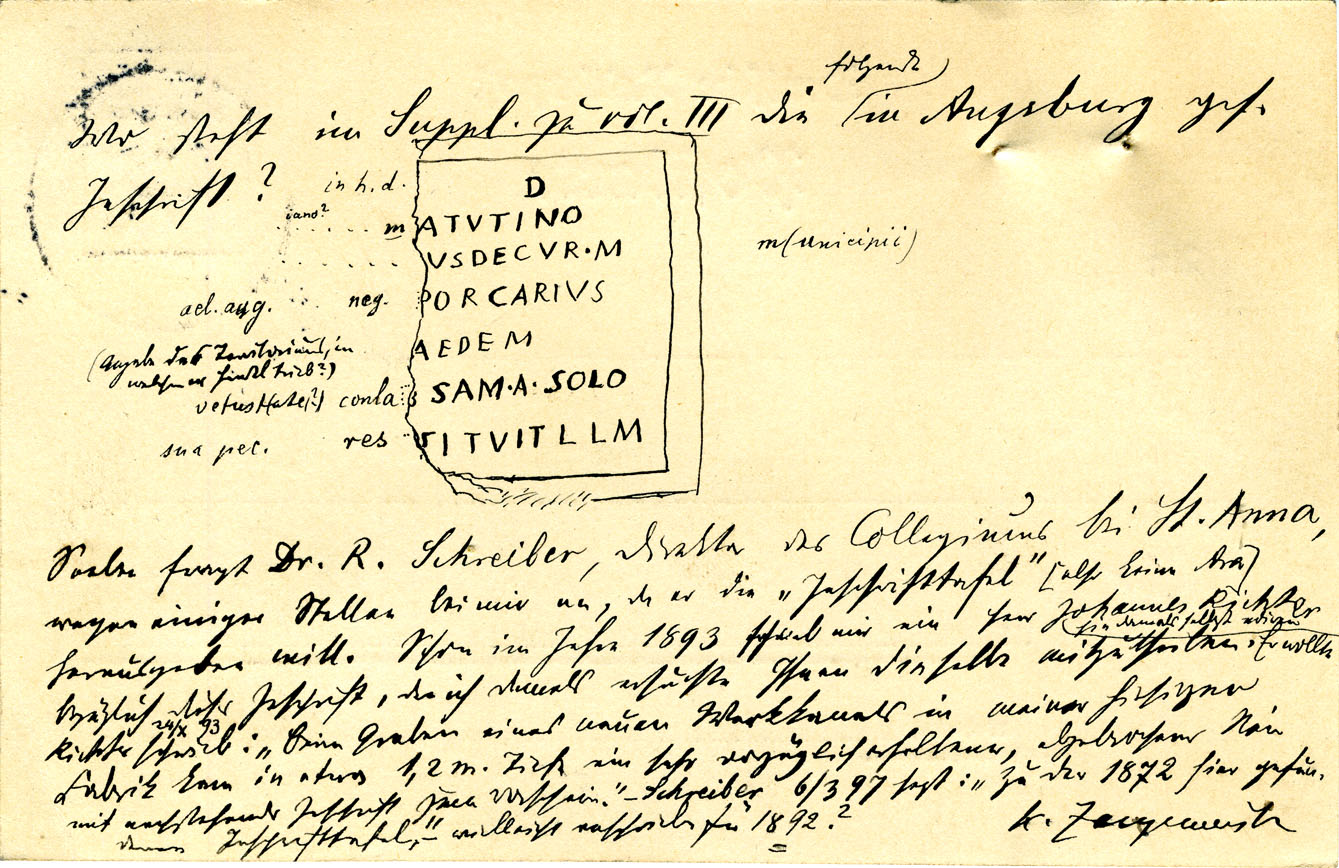 folgende
Wo steht im Suppl. zu vol. III die in Augsburg gef.
Inschrift? in h. d. D
iano?
. . . . . . m ATVTINO
. . . . . VSDECVR·M m(unicipii)
ael. aug. . . neg. PORCARIVS
(Angabe des Territoriums, in AEDEM
welchem er Handel trieb?)
vetust(ate?) conla SAM·A·SOLO
sua pec. res TITVITLLM
Soeben fragt Dr. R. Schreiber, Direktor des Collegiums bei St. Anna,
wegen einiger Stellen bei mir an, da er die „Inschrifttafel" [also keine Ara]
herausgeben will. Schon im Jahre 1893 schrieb mir ein Herr Johannes Richter
sie damals selbst ediren
bezüglich dieser Inschrift, die ich damals ersuchte Ihnen dieselbe mitzutheilen. Er wollte
24/X 93
Richter schrieb: „Beim Graben eines neuen Werkkanals in meiner hiesigen
Fabrik kam in etwa 1,2 m. Tiefe ein sehr vorzüglich erhaltener, abgebrochener Stein
mit nachstehender Inschrift zum Vorschein." – Schreiber 6/3 97 sagt: „zu der 1872 hier gefun-
denen Inschrifttafel," – vielleicht verschrieben für 1892.?
K. Zangemeister